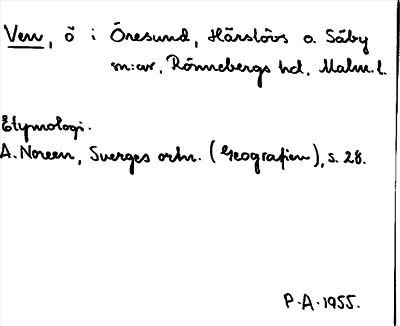 Ven, ö i Öresund, Härslövs o. Säby
sn:ar, Rönnebergs hd, Malm. l.
Etymologi.
A. Noreen, Sverges ortn. (Geografien), s. 28.
P.A. 1955.